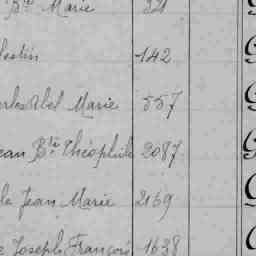 Bte Marie 321
lestin 142
arles Abel Marie 557
ean Bte Théophile 2087
le Jean Marie 2169
e Joseph François 1638